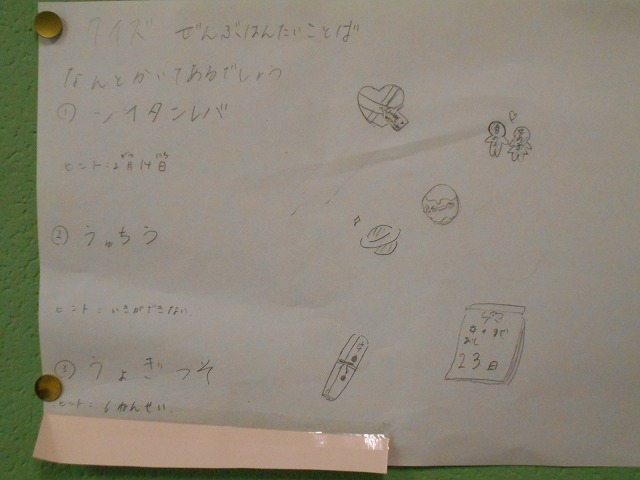 クイズ ぜんぶはんたいことば
なんとかいてあるでしょう
① ンイタンレバ
ヒント:2月14日
② うゅちう
ヒント:いきができない。
③ うょぎつそ
ヒント:6ねんせい。
23日